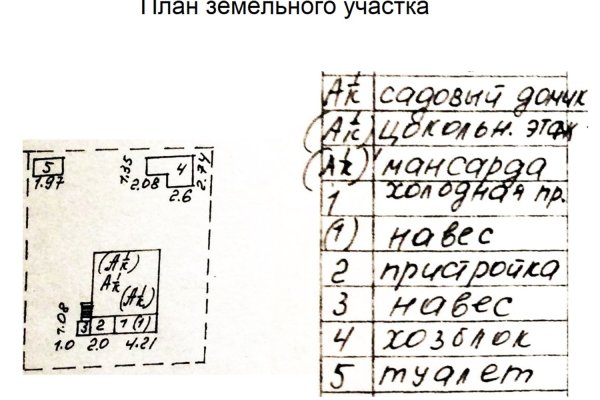 План земельного участка
5
1.97
1.35
4
2.74
2.08
2.6
(А 1/к)
А 1/к
(А 1/к)
1.08
3 2 1 (1)
1.0 2.0 4.21
А 1/к садовый домик
(А 1/к) цокольн. этаж
(А 1/к)' мансарда
1 холодная пр.
(1) навес
2 пристройка
3 навес
4 хозблок
5 туалет